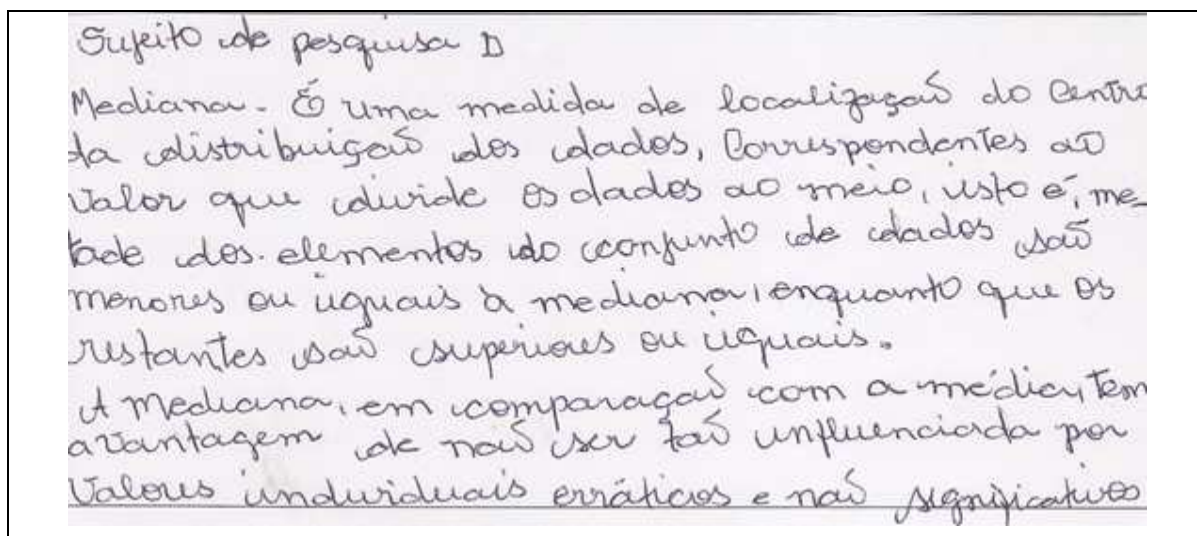 Sujeito de pesquisa D
Mediana - É uma medida de localização do Centro
da distribuição dos dados, Correspondentes ao
Valor que divide os dados ao meio, isto é, me-
tade dos elementos do conjunto de dados são
menores ou iguais à mediana, enquanto que os
restantes são superiores ou iguais.
A mediana, em comparação com a média, tem
a vantagem de não ser tão influenciada por
Valores individuais erráticos e não significativos